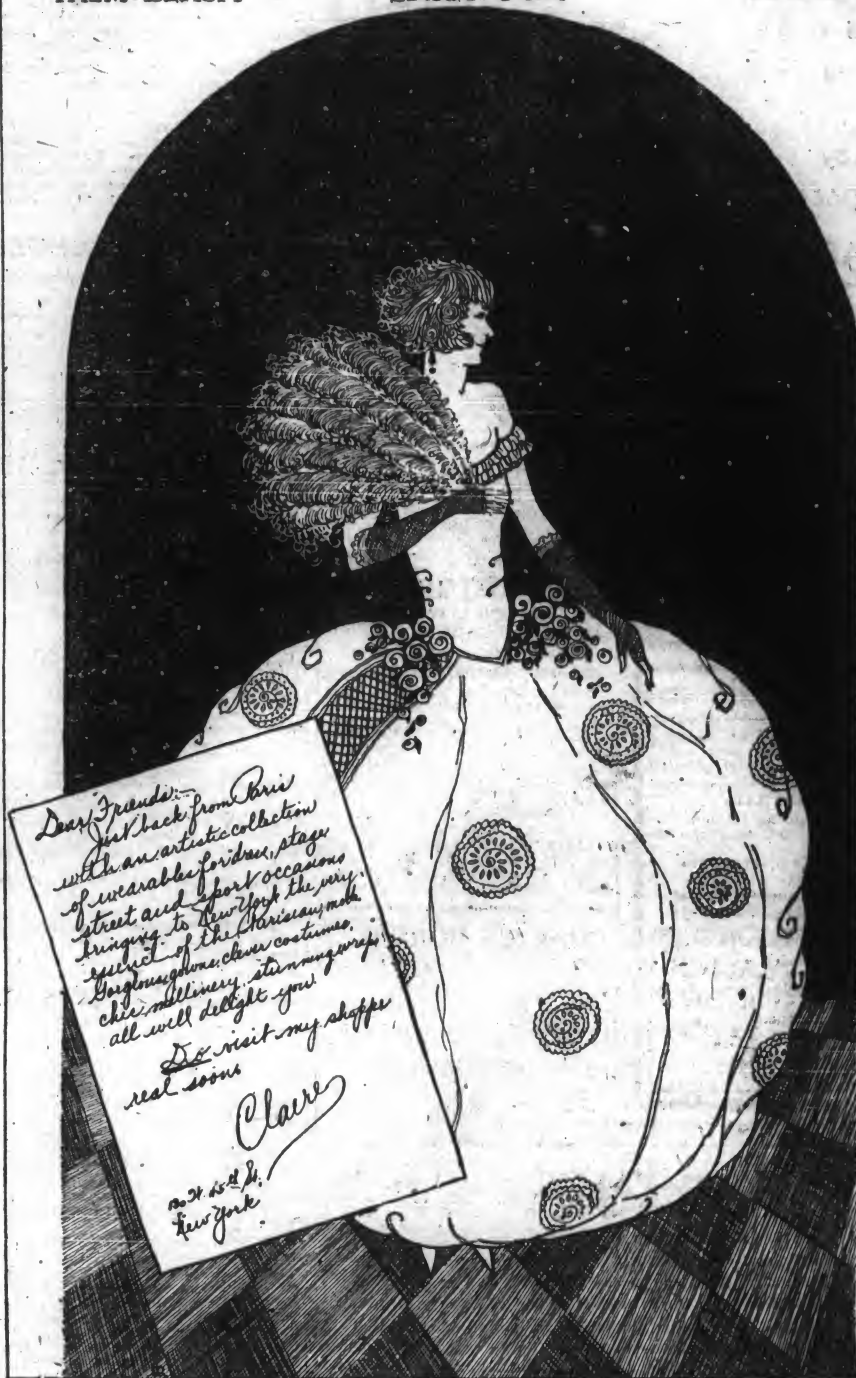 Dear Friends:—
Just back from Paris
with an artistic collection
of wearables for dress, stage
street and sport occasions
bringing to New York the very
essence of the Parisian mode
Gorgeous gowns, clever costumes,
chic millinery, stunning wraps,
all will delight you
Do visit my shoppe
real soon
Claire
130 W. 45th St.
New York